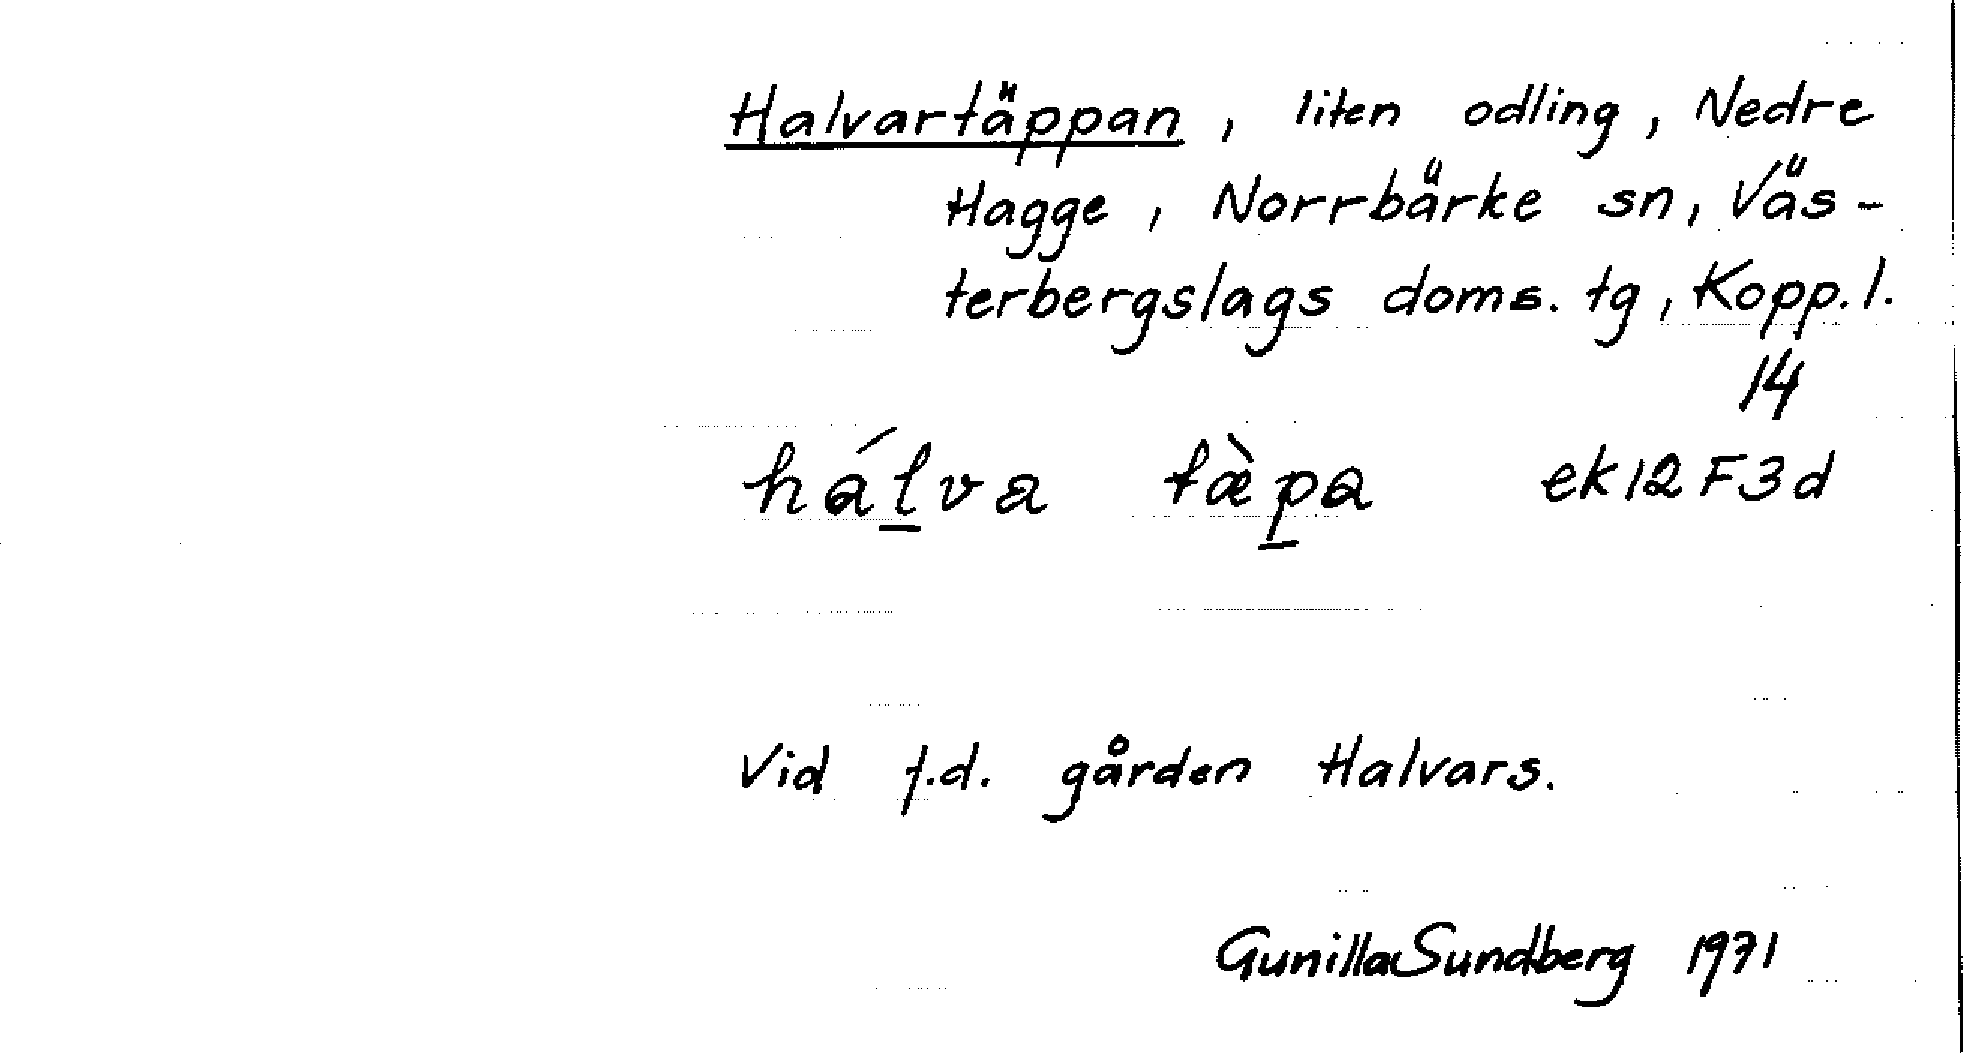 Halvartäppan, liten odling, Nedre
Hagge, Norrbärke sn, Väs-
terbergslags doms. tg, Kopp. l.
14
hál̲va tæ̀p̲a ek 12 F3d
Vid f.d. gården Halvars.
Gunilla Sundberg 1971